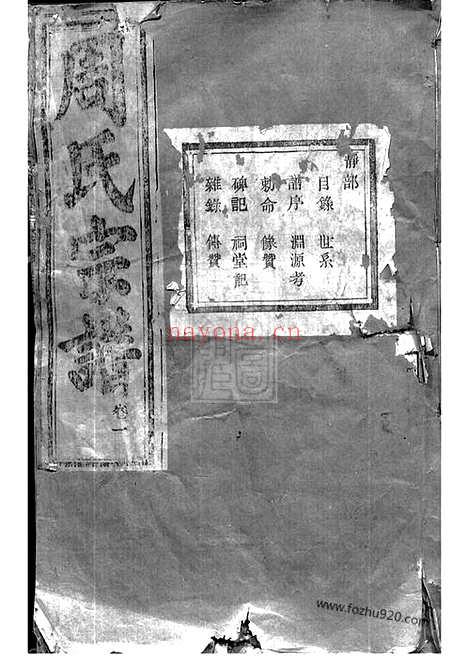 周氏宗譜
卷一
靜部
目錄 世系
譜序 淵源考
勅命 像贊
碑記 祠堂記
雜錄 傳贊
nayona.cn
https://www.fozhu920.com